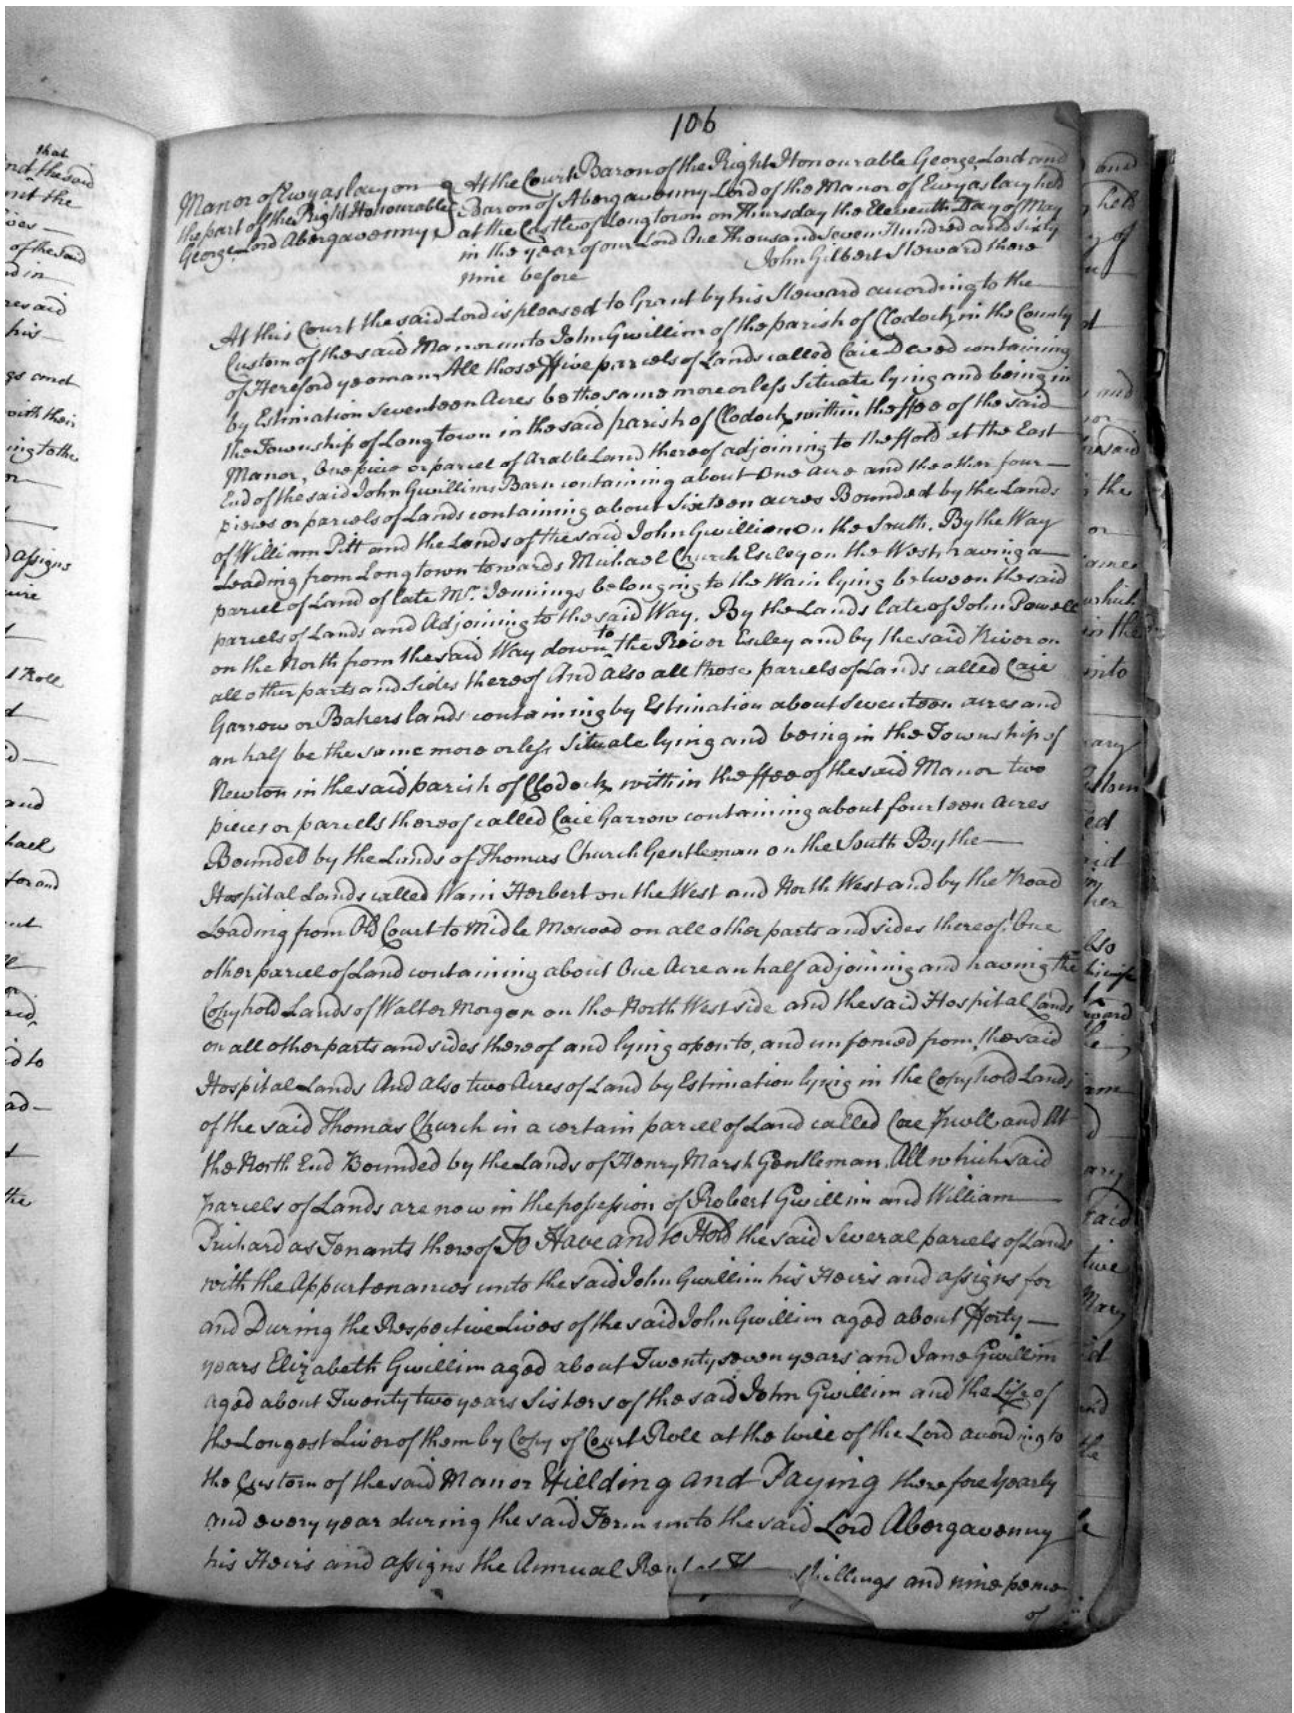 106
Manor of Ewyas lacy on
the part of the Right Honourable
George Lord Abergavenny
At the Court Baron of the Right Honourable George Lord and
Baron of Abergavenny Lord of the Manor of Ewyas lacy held
at the Castle of Longtown on Thursday the Eleventh Day of May
in the year of our Lord One Thousand Seven Hundred and sixty
nine before John Gilbert Steward there
At this Court the said Lord is pleased to Grant by his Steward according to the
Custom of the said Manor unto John Gwillim of the parish of Clodock in the County
of Hereford yeoman All those ffive parcels of Lands called Caie Dewed containing
by Estimation Seventeen Acres be the same more or less Situate lying and being in
the Township of Longtown in the said parish of Clodock within the ffee of the said
Manor, One piece or parcel of Arable Land thereof adjoining to the ffold at the East
End of the said John Gwillims Barn containing about One acre and the other four
pieces or parcels of Lands containing about Sixteen acres Bounded by the Lands
of William Pitt and the Lands of the said John Gwillim on the South. By the Way
Leading from Longtown towards Michael Church Escley on the West having a
parcel of Land of late Mr. Jennings belonging to the Wain lying between the said
parcels of Lands and Adjoining to the said Way. By the Lands late of John Powell
on the North from the said Way down to the River Escley and by the said River on
all other parts and Sides thereof And also all those parcels of Lands called Caie
Garrow or Bakers lands containing by Estimation about Seventeen acres and
an half be the same more or less Situate lying and being in the Township of
Newton in the said parish of Clodock within the ffee of the said Manor two
pieces or parcells thereof called Caie Garrow containing about fourteen Acres
Bounded by the Lands of Thomas Church Gentleman on the South By the
Hospital Lands called Wain Herbert on the West and North West and by the Road
Leading from Old Court to Midle Mescoed on all other parts and sides thereof. One
other parcel of Land containing about One Acre an half adjoining and having the
Copyhold Lands of Walter Morgan on the North West side and the said Hospital Lands
on all other parts and sides thereof and lying open to, and unfenced from, the said
Hospital Lands And Also two Acres of Land by Estimation lying in the Copyhold Lands
of the said Thomas Church in a certain parcel of Land called Cae and At
the North End Bounded by the Lands of Henry Marsh Gentleman. All which said
parcels of Lands are now in the possession of Robert Gwillim and William
Prichard as Tenants thereof To Have and to Hold the said Several parcels of Lands
with the Appurtenances unto the said John Gwillim his Heirs and assigns for
and During the Respective Lives of the said John Gwillim aged about fforty
years Elizabeth Gwillim aged about Twenty seven years and Jane Gwillim
aged about Twenty two years Sisters of the said John Gwillim and the Life of
the Longest Liver of them by Copy of Court Roll at the Will of the Lord according to
the Custom of the said Manor Yielding and Paying therefore Yearly
and every year during the said Term unto the said Lord Abergavenny
his Heirs and assigns the Annual Rent of shillings and nine pence
of